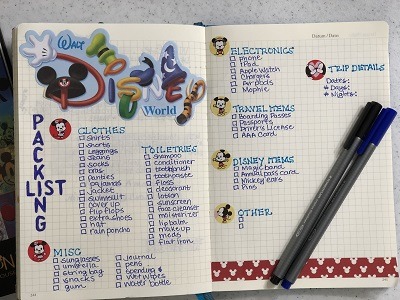 WALT
Disney
World
PACKING LIST
CLOTHES
shirts
shorts
leggings
jeans
socks
bras
panties
pajamas
jacket
swimsuit
cover up
flip flops
extra shoes
hat
rain poncho
TOILETRIES
shampoo
conditioner
toothbrush
toothpaste
floss
deodorant
lotion
sunscreen
face cleanser
moisturizer
lip balm
make up
meds
flat iron
MISC
sunglasses
umbrella
string bag
snacks
gum
journal
pens
spending $
wet wipes
water bottle
244
Datum / Date:
ELECTRONICS
phone
iPad
Apple Watch
Chargers
Air pods
Mophie
TRAVEL ITEMS
Boarding Passes
Passports
Driver's License
AAA Card
DISNEY ITEMS
Magic Band
Annual pass card
Mickey ears
Pins
OTHER
TRIP DETAILS
Dates:
# Days:
# Nights:
245